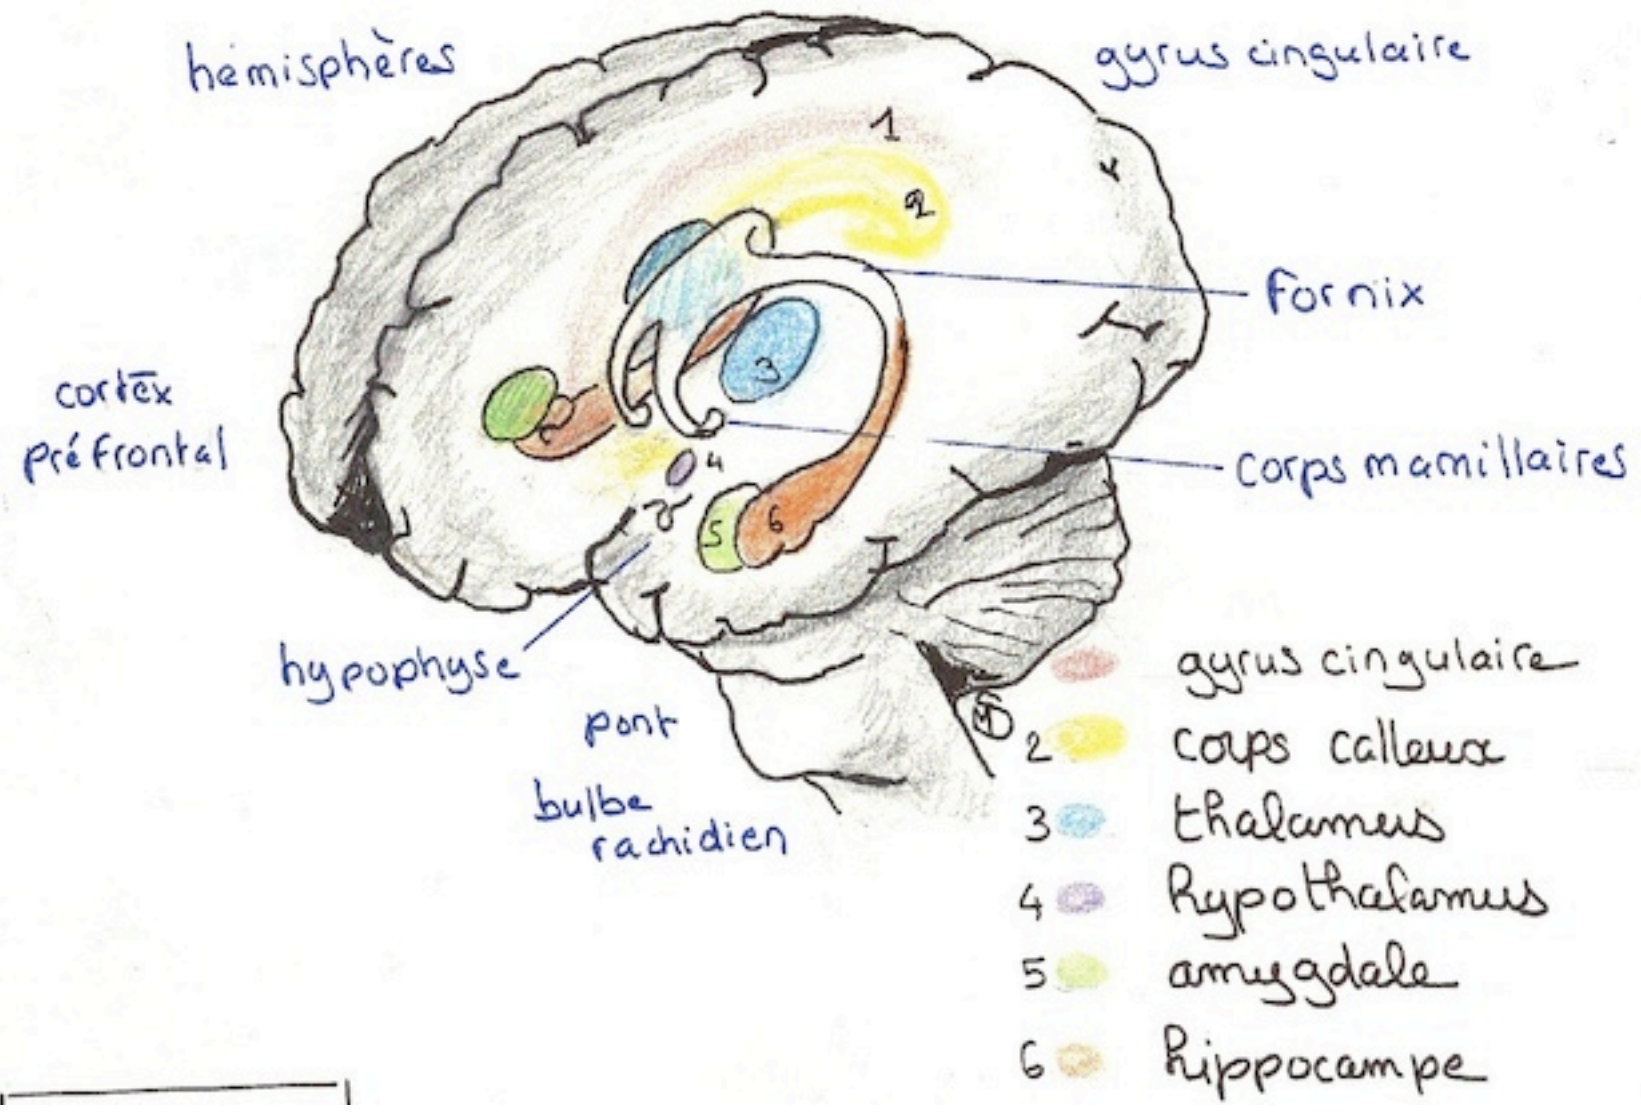 hémisphères
gyrus cingulaire
1
2
fornix
3
cortēx
préfrontal
corps mamillaires
4
5
6
hypophyse
pont
bulbe
rachidien
gyrus cingulaire
2 corps calleux
3 thalamus
4 hypothalamus
5 amygdale
6 hippocampe